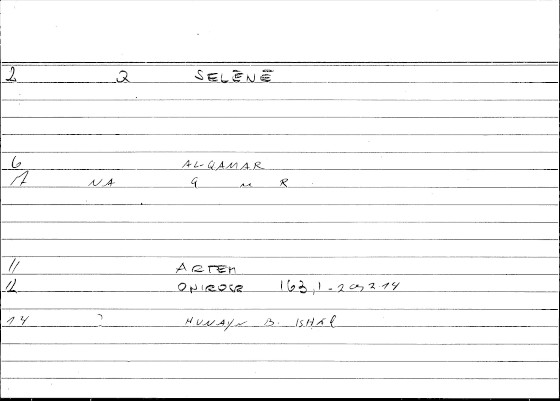 2 2 SELĒNĒ
6 AL-QAMAR
NA q m R
11 ARTEM
12 ONIROCR 163,1 - 214
14 ? HUNAYN B. ISHĀQ